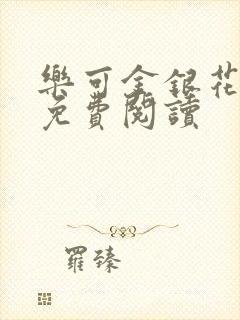 樂可金銀花
免費閱讀
羅臻